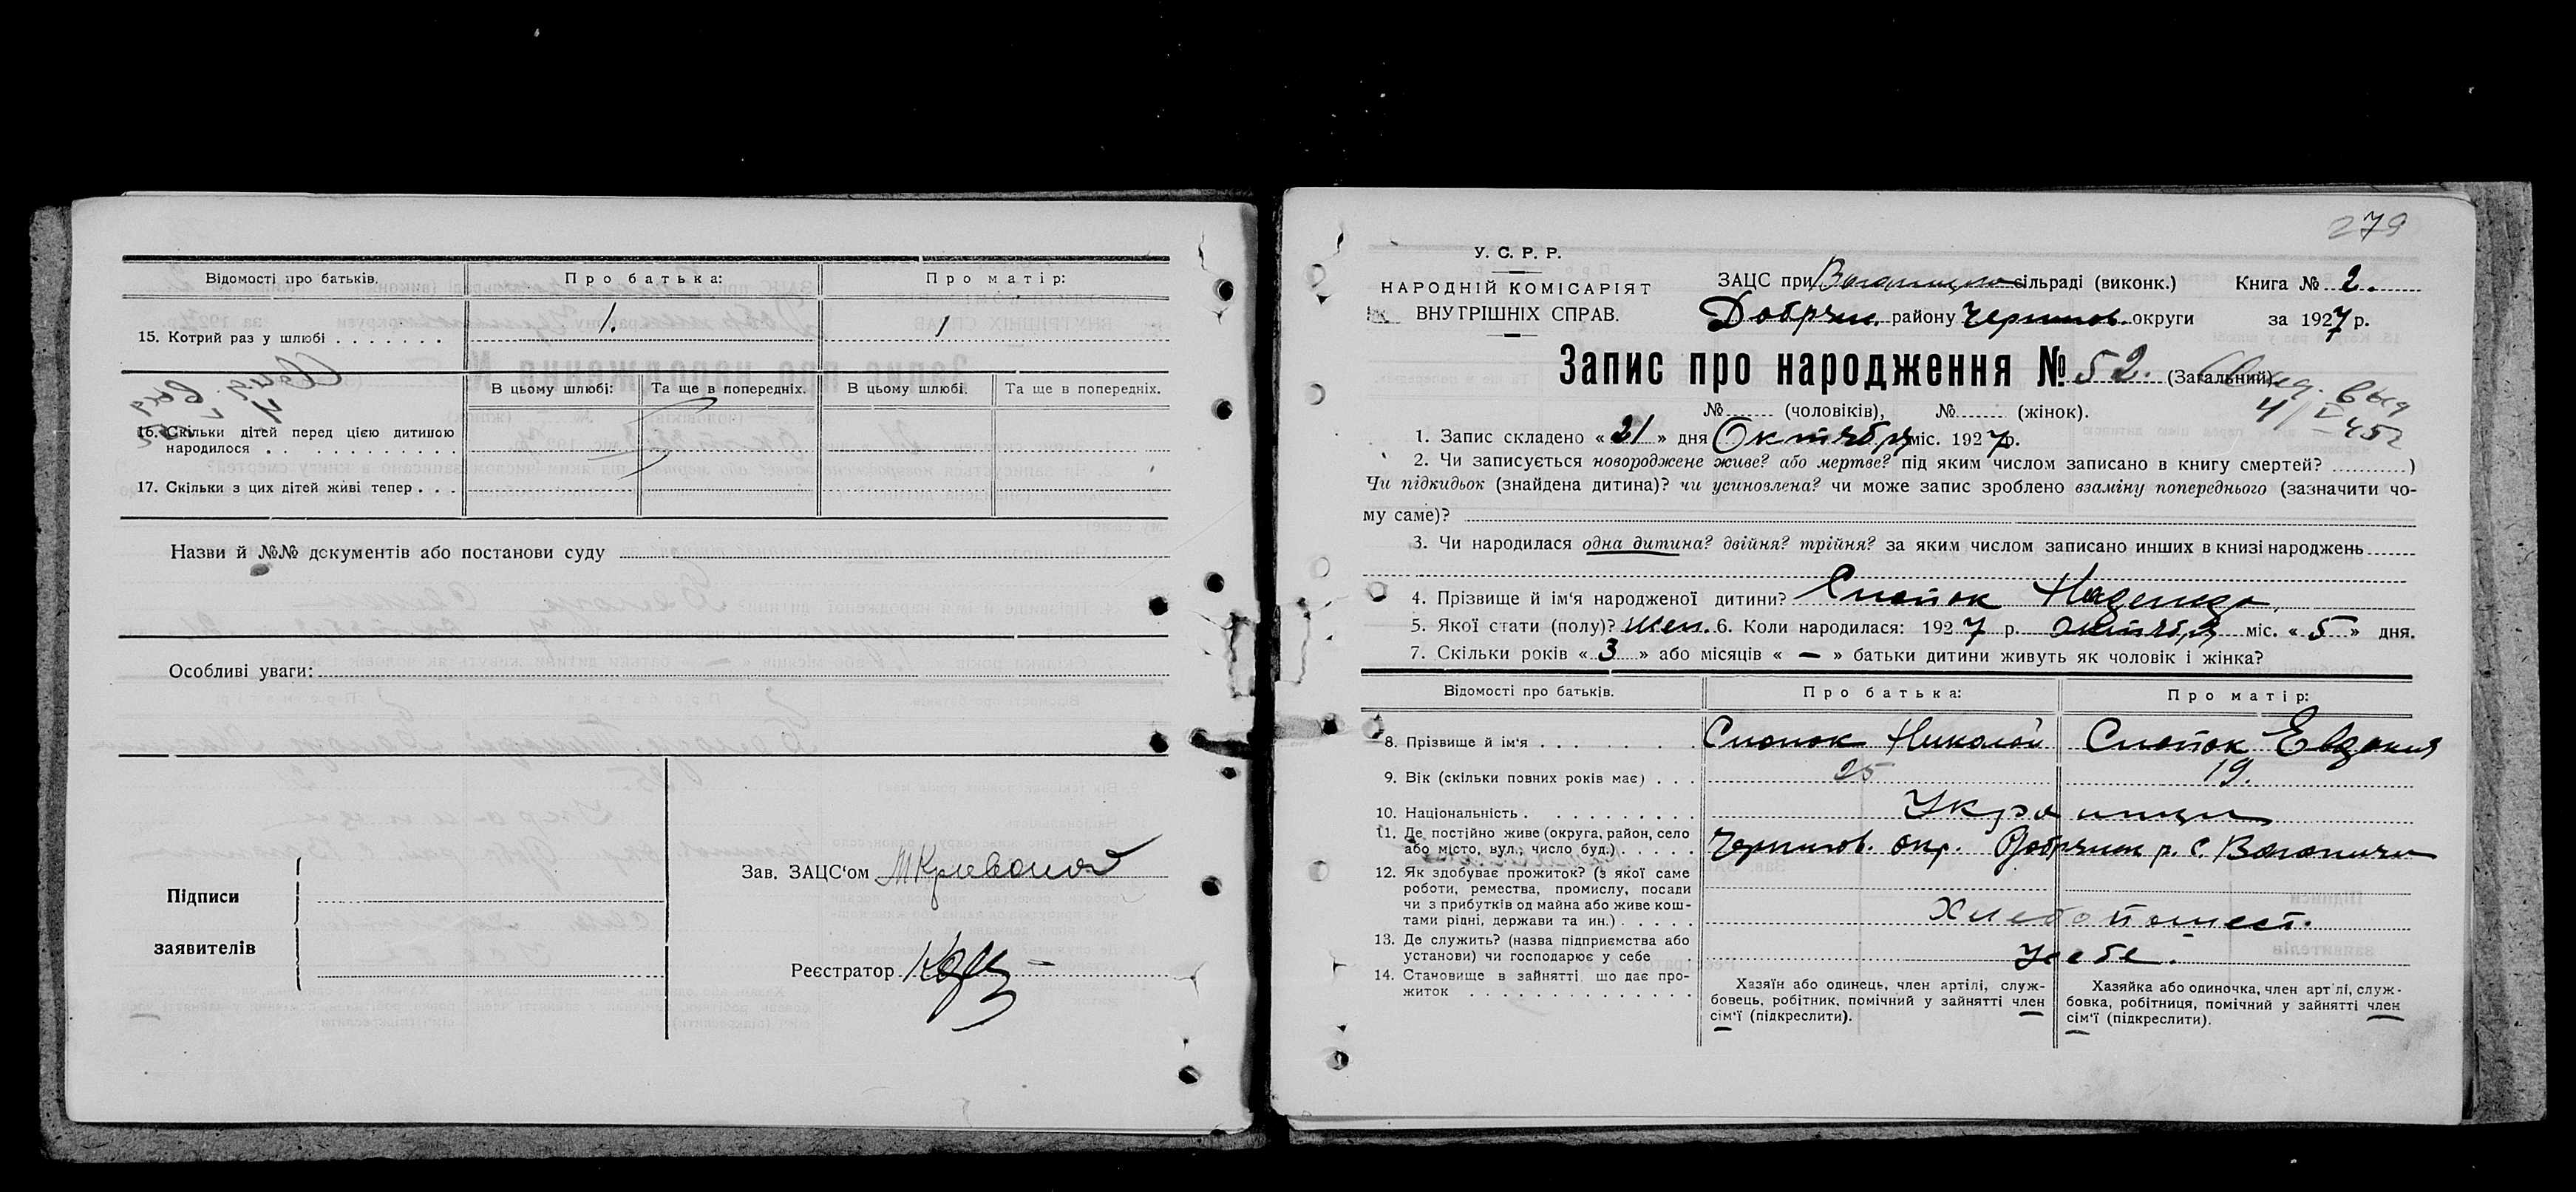 Відомості про батьків. Про батька: Про матір:
15. Котрий раз у шлюбі 1. 1
В цьому шлюбі: Та ще в попередніх. В цьому шлюбі. Та ще в попередніх.
16. Скільки дітей перед цією дитиною
народилося
17. Скільки з цих дітей живі тепер
Назви й №№ документів або постанови суду
Особливі уваги:
Підписи
заявителів
Зав. ЗАЦС'ом
Реєстратор
279
У. С. Р. Р.
НАРОДНІЙ КОМІСАРІЯТ
ВНУТРІШНІХ СПРАВ.
ЗАЦС при сільраді (виконк.) Книга № 2.
Добрян. району Чернигов. округи за 1927 р.
Запис про народження № 52. (Загальний)
№ (чоловіків), № (жінок).
1. Запис складено « 21 » дня Октября міс. 1927 р.
2. Чи записується новороджене живе? або мертве? під яким числом записано в книгу смертей? )
Чи підкидьок (знайдена дитина)? чи усиновлена? чи може запис зроблено взаміну попереднього (зазначити чо-
му саме)?
3. Чи народилася одна дитина? двійня? трійня? за яким числом записано инших в книзі народжень
4. Прізвище й ім'я народженої дитини? Надежда
5. Якої стати (полу)? жен. 6. Коли народилася: 1927 р. октября міс. « 5 » дня.
7. Скільки років « 3 » або місяців « — » батьки дитини живуть як чоловік і жінка?
Відомості про батьків. Про батька: Про матір:
8. Прізвище й ім'я Николай Евдокия
9. Вік (скільки повних років має) 25 19.
10. Національність Украинцы
11. Де постійно живе (округа, район, село
або місто, вул., число буд.) Чернигов. окр. Добрянск р. с.
12. Як здобуває прожиток? (з якої саме
роботи, ремества, промислу, посади
чи з прибутків од майна або живе кош-
тами рідні, держави та ин.) Хлебопашест.
13. Де служить? (назва підприємства або
установи) чи господарює у себе У себе.
14. Становище в зайнятті що дає про-
житок
Хазяїн або одинець, член артілі, служ-
бовець, робітник, помічний у зайнятті член
сім'ї (підкреслити).
Хазяйка або одиночка, член арт'лі, служ-
бовка, робітниця, помічний у зайнятті член
сім'ї (підкреслити).